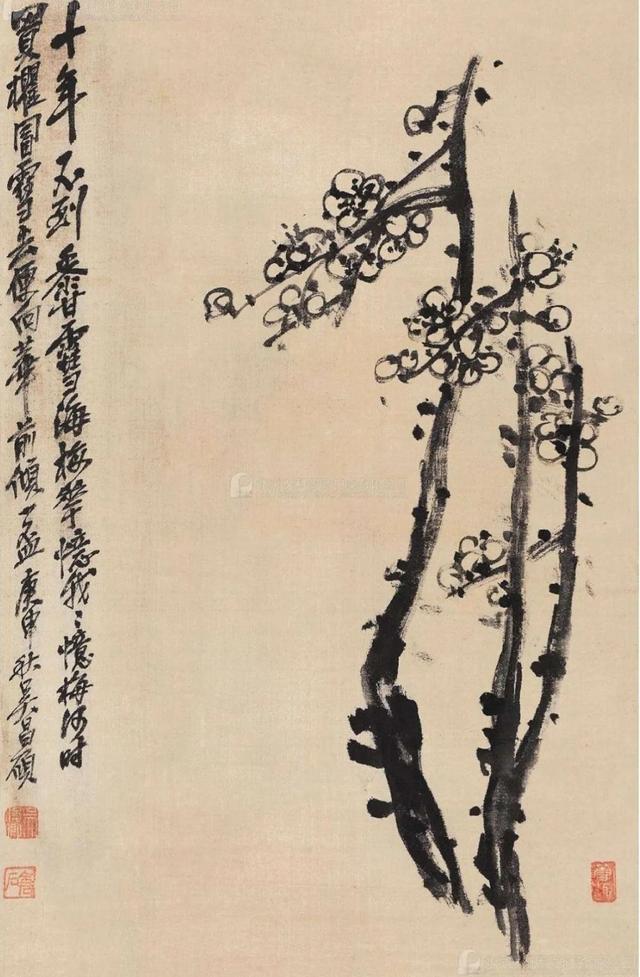 十年不到香雪海梅華憶我々憶梅何時
買櫂冒雪去便向華前傾一盃庚申秋吳昌碩